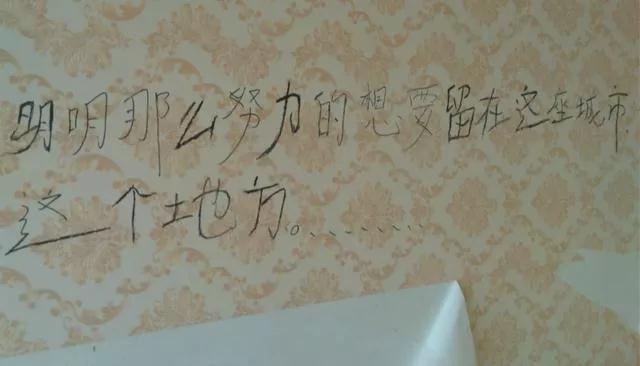 明明那么努力的想要留在这座城市.
这一个土地方。........